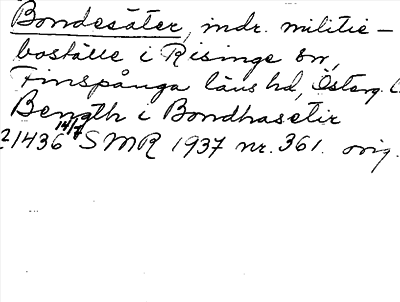 Bondesäter, indr. militie-
boställe i Risinge sn,
Finspånga läns hd, Österg. l.
Bength i Bondhasetir
21436 14/7 SMR 1937 nr. 361. orig.